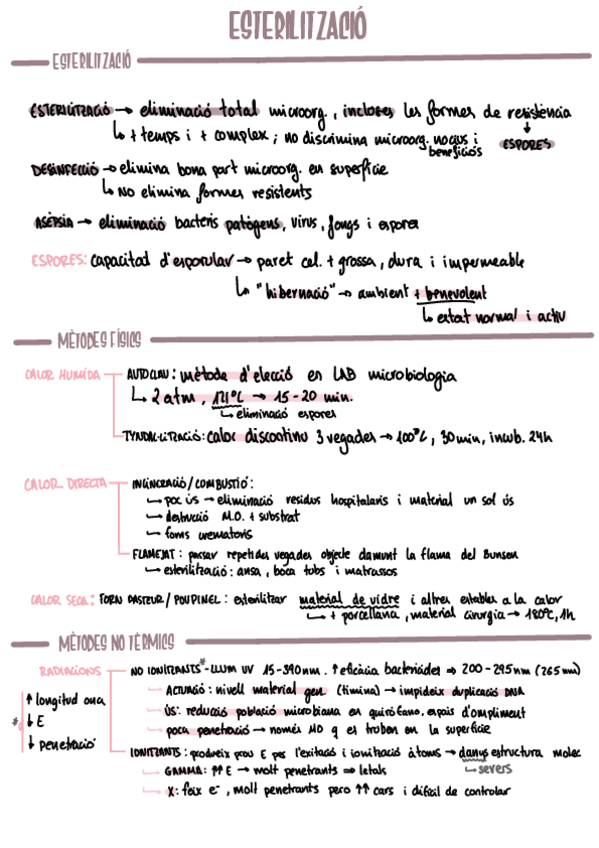 ESTERILITZACIÓ
ESTERILITZACIÓ
ESTERILITZACIÓ → eliminació total microorg., incloses les formes de resistència
↳ + temps i + complex; no discrimina microorg. nocius i beneficiosos
↓ ESPORES
DESINFECCIÓ → elimina bona part microorg. en superfície
↳ No elimina formes resistents
ASÈPSIA → eliminació bacteris patògens, virus, fongs i espores
ESPORES: capacitad d'esporular → paret cel. + grossa, dura i impermeable
↳ "hibernació" → ambient + benevolent
↳ estat normal i actiu
MÈTODES FÍSICS
CALOR HUMIDA
AUTOCLAU: mètode d'elecció en LAB microbiologia
↳ 2 atm, 121ºC → 15-20 min.
↳ eliminació espores
TYNDAL·LITZACIÓ: calor discontinu 3 vegades → 100ºC, 30 min, incub. 24h
CALOR DIRECTA
INCINERACIÓ/COMBUSTIÓ:
↳ poc ús → eliminació residus hospitalaris i material un sol ús
↳ destrucció M.O. + substrat
↳ forns crematoris
FLAMEJAT: passar repetides vegades objecte damunt la flama del Bunsen
↳ esterilització: ansa, boca tubs i matrassos
CALOR SECA: FORN PASTEUR/POUPINEL: esterilitzar material de vidre i altres estables a la calor
↳ + porcellana, material cirurgia → 180ºC, 1h
MÈTODES NO TÈRMICS
RADIACIONS
NO IONITZANTS* - LLUM UV 15-390nm. ↑ eficàcia bactericides ⇒ 200-295nm (265nm)
ACTUACIÓ: nivell material gen. (timina) → impideix duplicació DNA
ÚS: reducció població microbiana en quiròfans, espais d'ompliment
poca penetració → només MO q es troben en la superfície
* ↑ longitud ona
↓ E
↓ penetració
IONITZANTS: produeix prou E per l'exitació i ionització àtoms → danys estructura molec
↳ severs
GAMMA: ↑↑ E → molt penetrants ⇒ letals
X: feix e⁻, molt penetrants pero ↑↑ cars i difícil de controlar